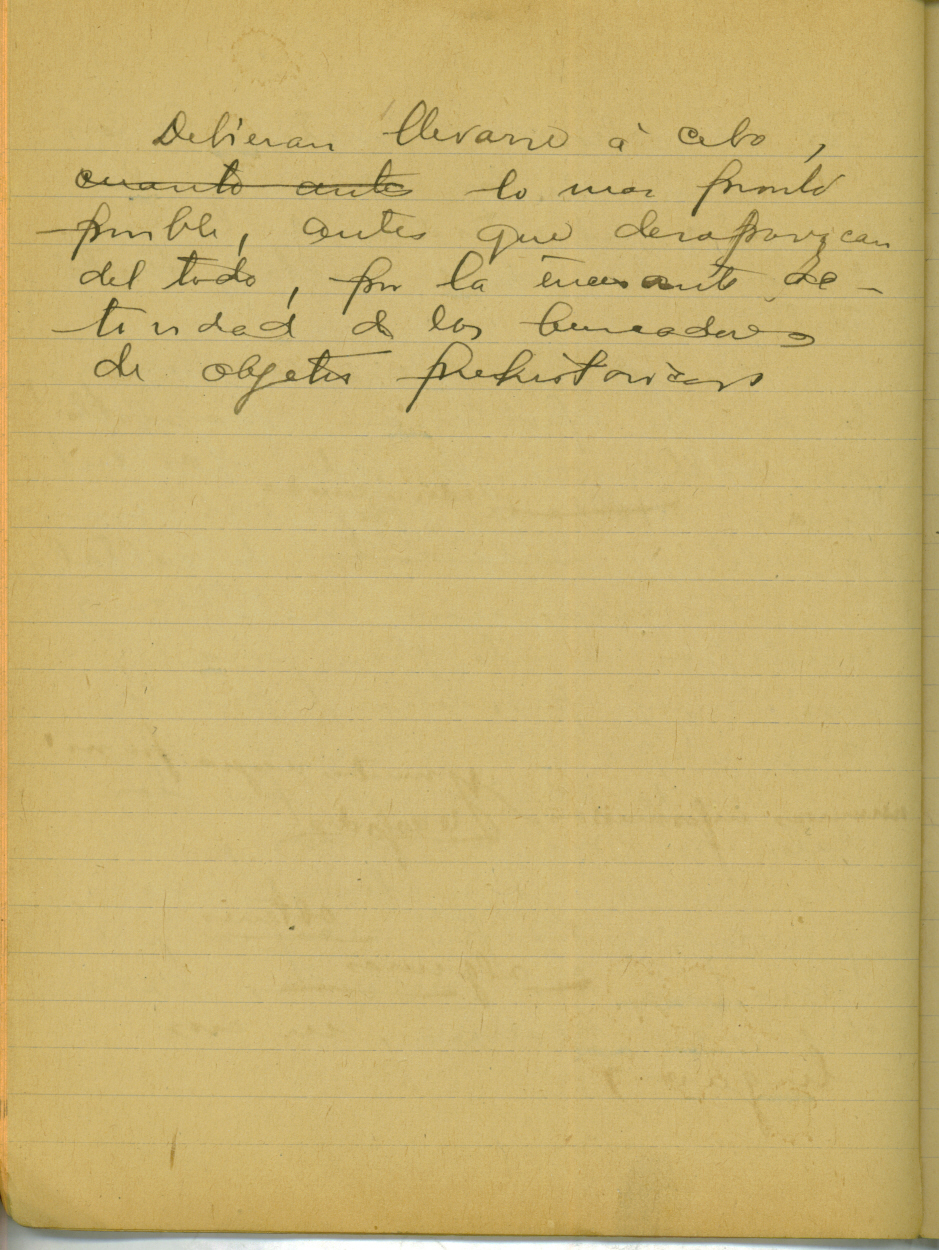 Debieran llevarse á cabo,
cuanto antes lo mas pronto
posible, antes que desaparezcan
del todo, por la incesante ac-
tividad de los buscadores
de objetos prehistoricos